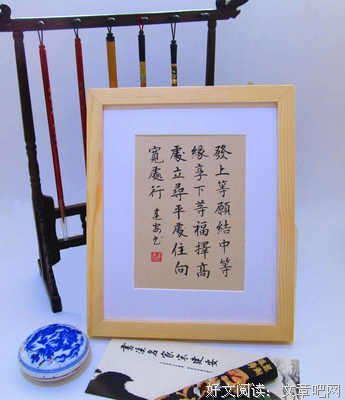 發上等願結中等
緣享下等福擇高
處立尋平處住向
寬處行
建安书
書法名家宋建安
好文阅读：文章吧网